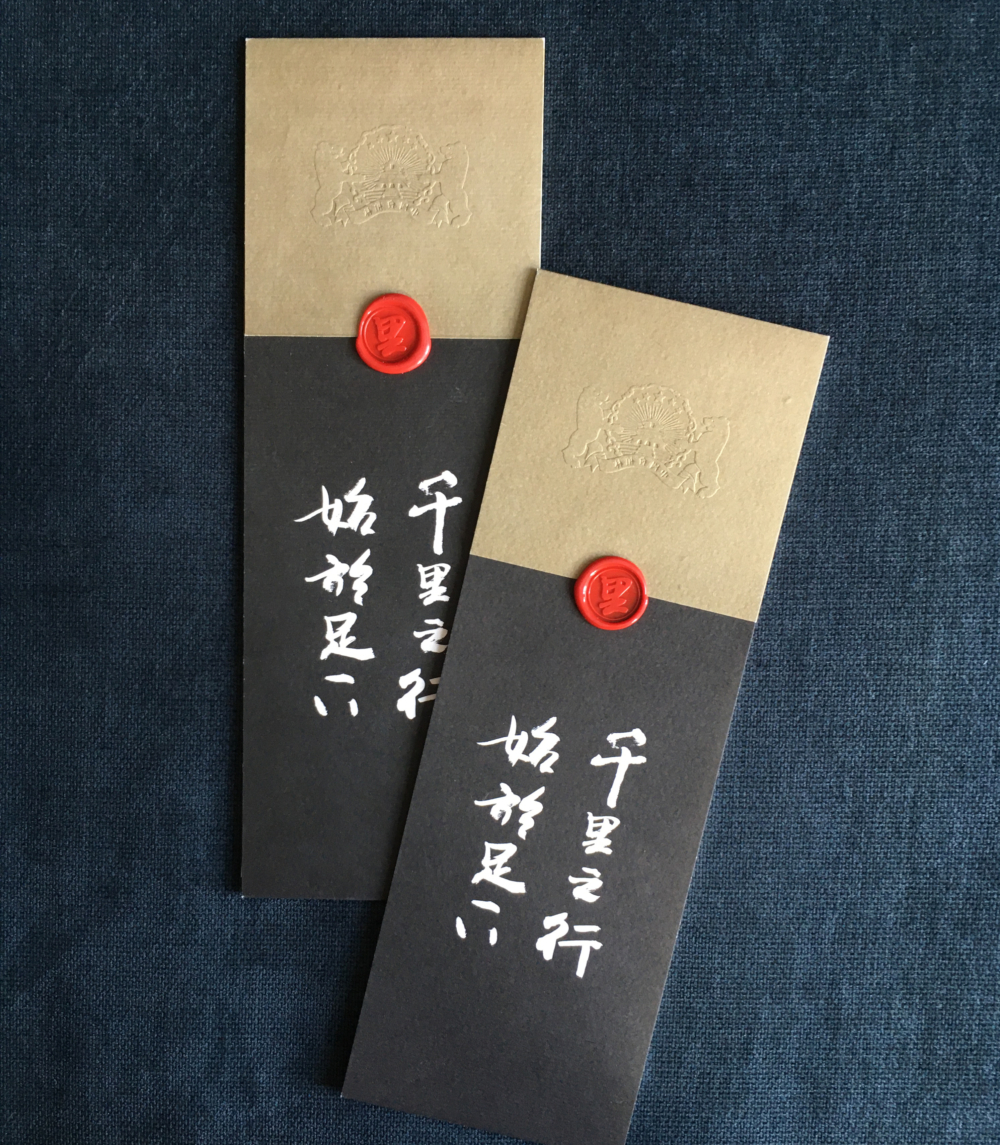 里
千里之行
始於足下
里
千里之行
始於足下